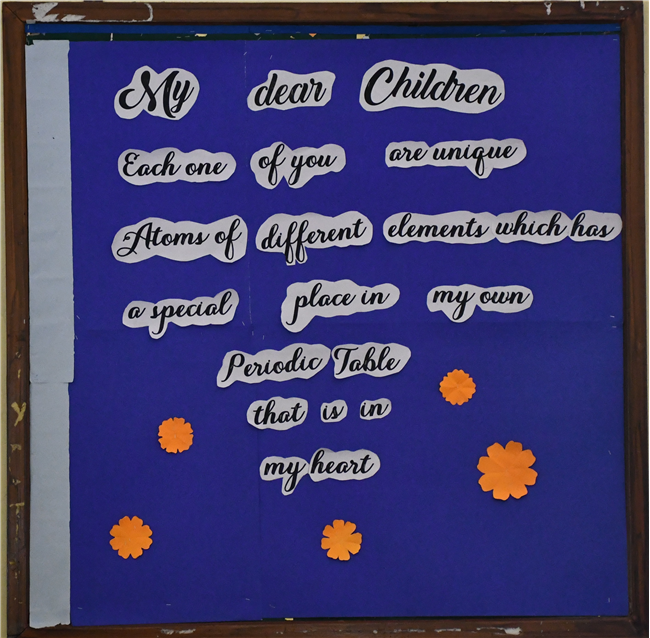 My dear Children
Each one of you are unique
Atoms of different elements which has
a special place in my own
Periodic Table
that is in
my heart